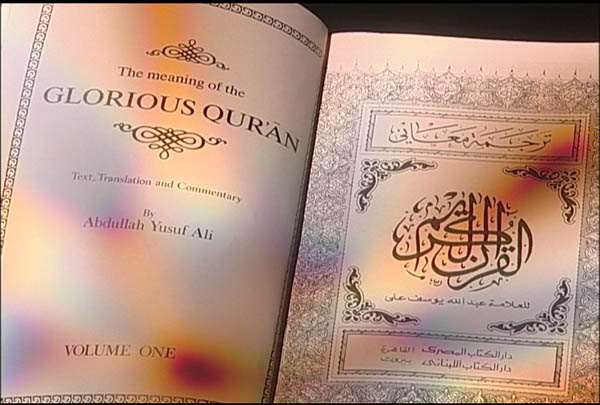 The meaning of the
GLORIOUS QUR'ĀN
Text, Translation and Commentary
By
Abdullah Yusuf Ali
VOLUME ONE
ترجمة معاني
القرآن الكريم
للعلامة عبد الله يوسف على
دار الكتاب المصرى القاهرة
دار الكتاب اللبنانى بيروت